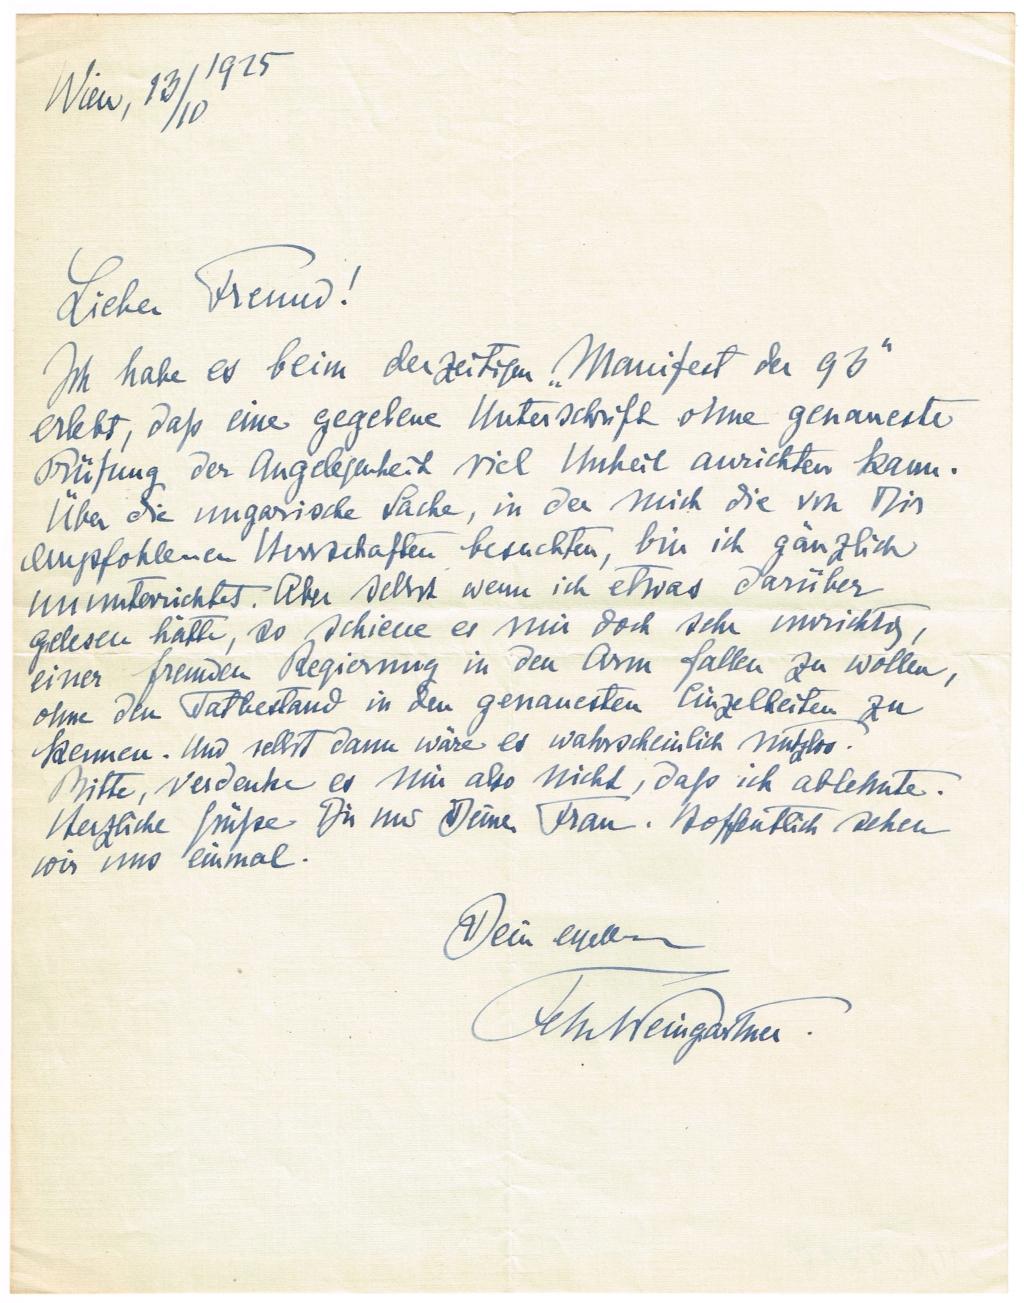 Wien, 13/10 1925
Lieber Freund!
Ich habe es beim derzeitigen „Manifest der 93“
erlebt, daß eine gegebene Unterschrift ohne genaueste
Prüfung der Angelegenheit viel Unheil anrichten kann.
Über die ungarische Sache, in der mich die von Dir
empfohlenen Herrschaften besuchten, bin ich gänzlich
ununterrichtet. Aber selbst wenn ich etwas darüber
gelesen hätte, so schiene es mir doch sehr unrichtig,
einer fremden Regierung in den Arm fallen zu wollen,
ohne den Tatbestand in den genauesten Einzelheiten zu
kennen. Und selbst dann wäre es wahrscheinlich nutzlos.
Bitte, verdenke es mir also nicht, daß ich ablehnte.
Herzliche Grüße Dir und Deiner Frau. Hoffentlich sehen
wir uns einmal.
Dein
Felix Weingartner.